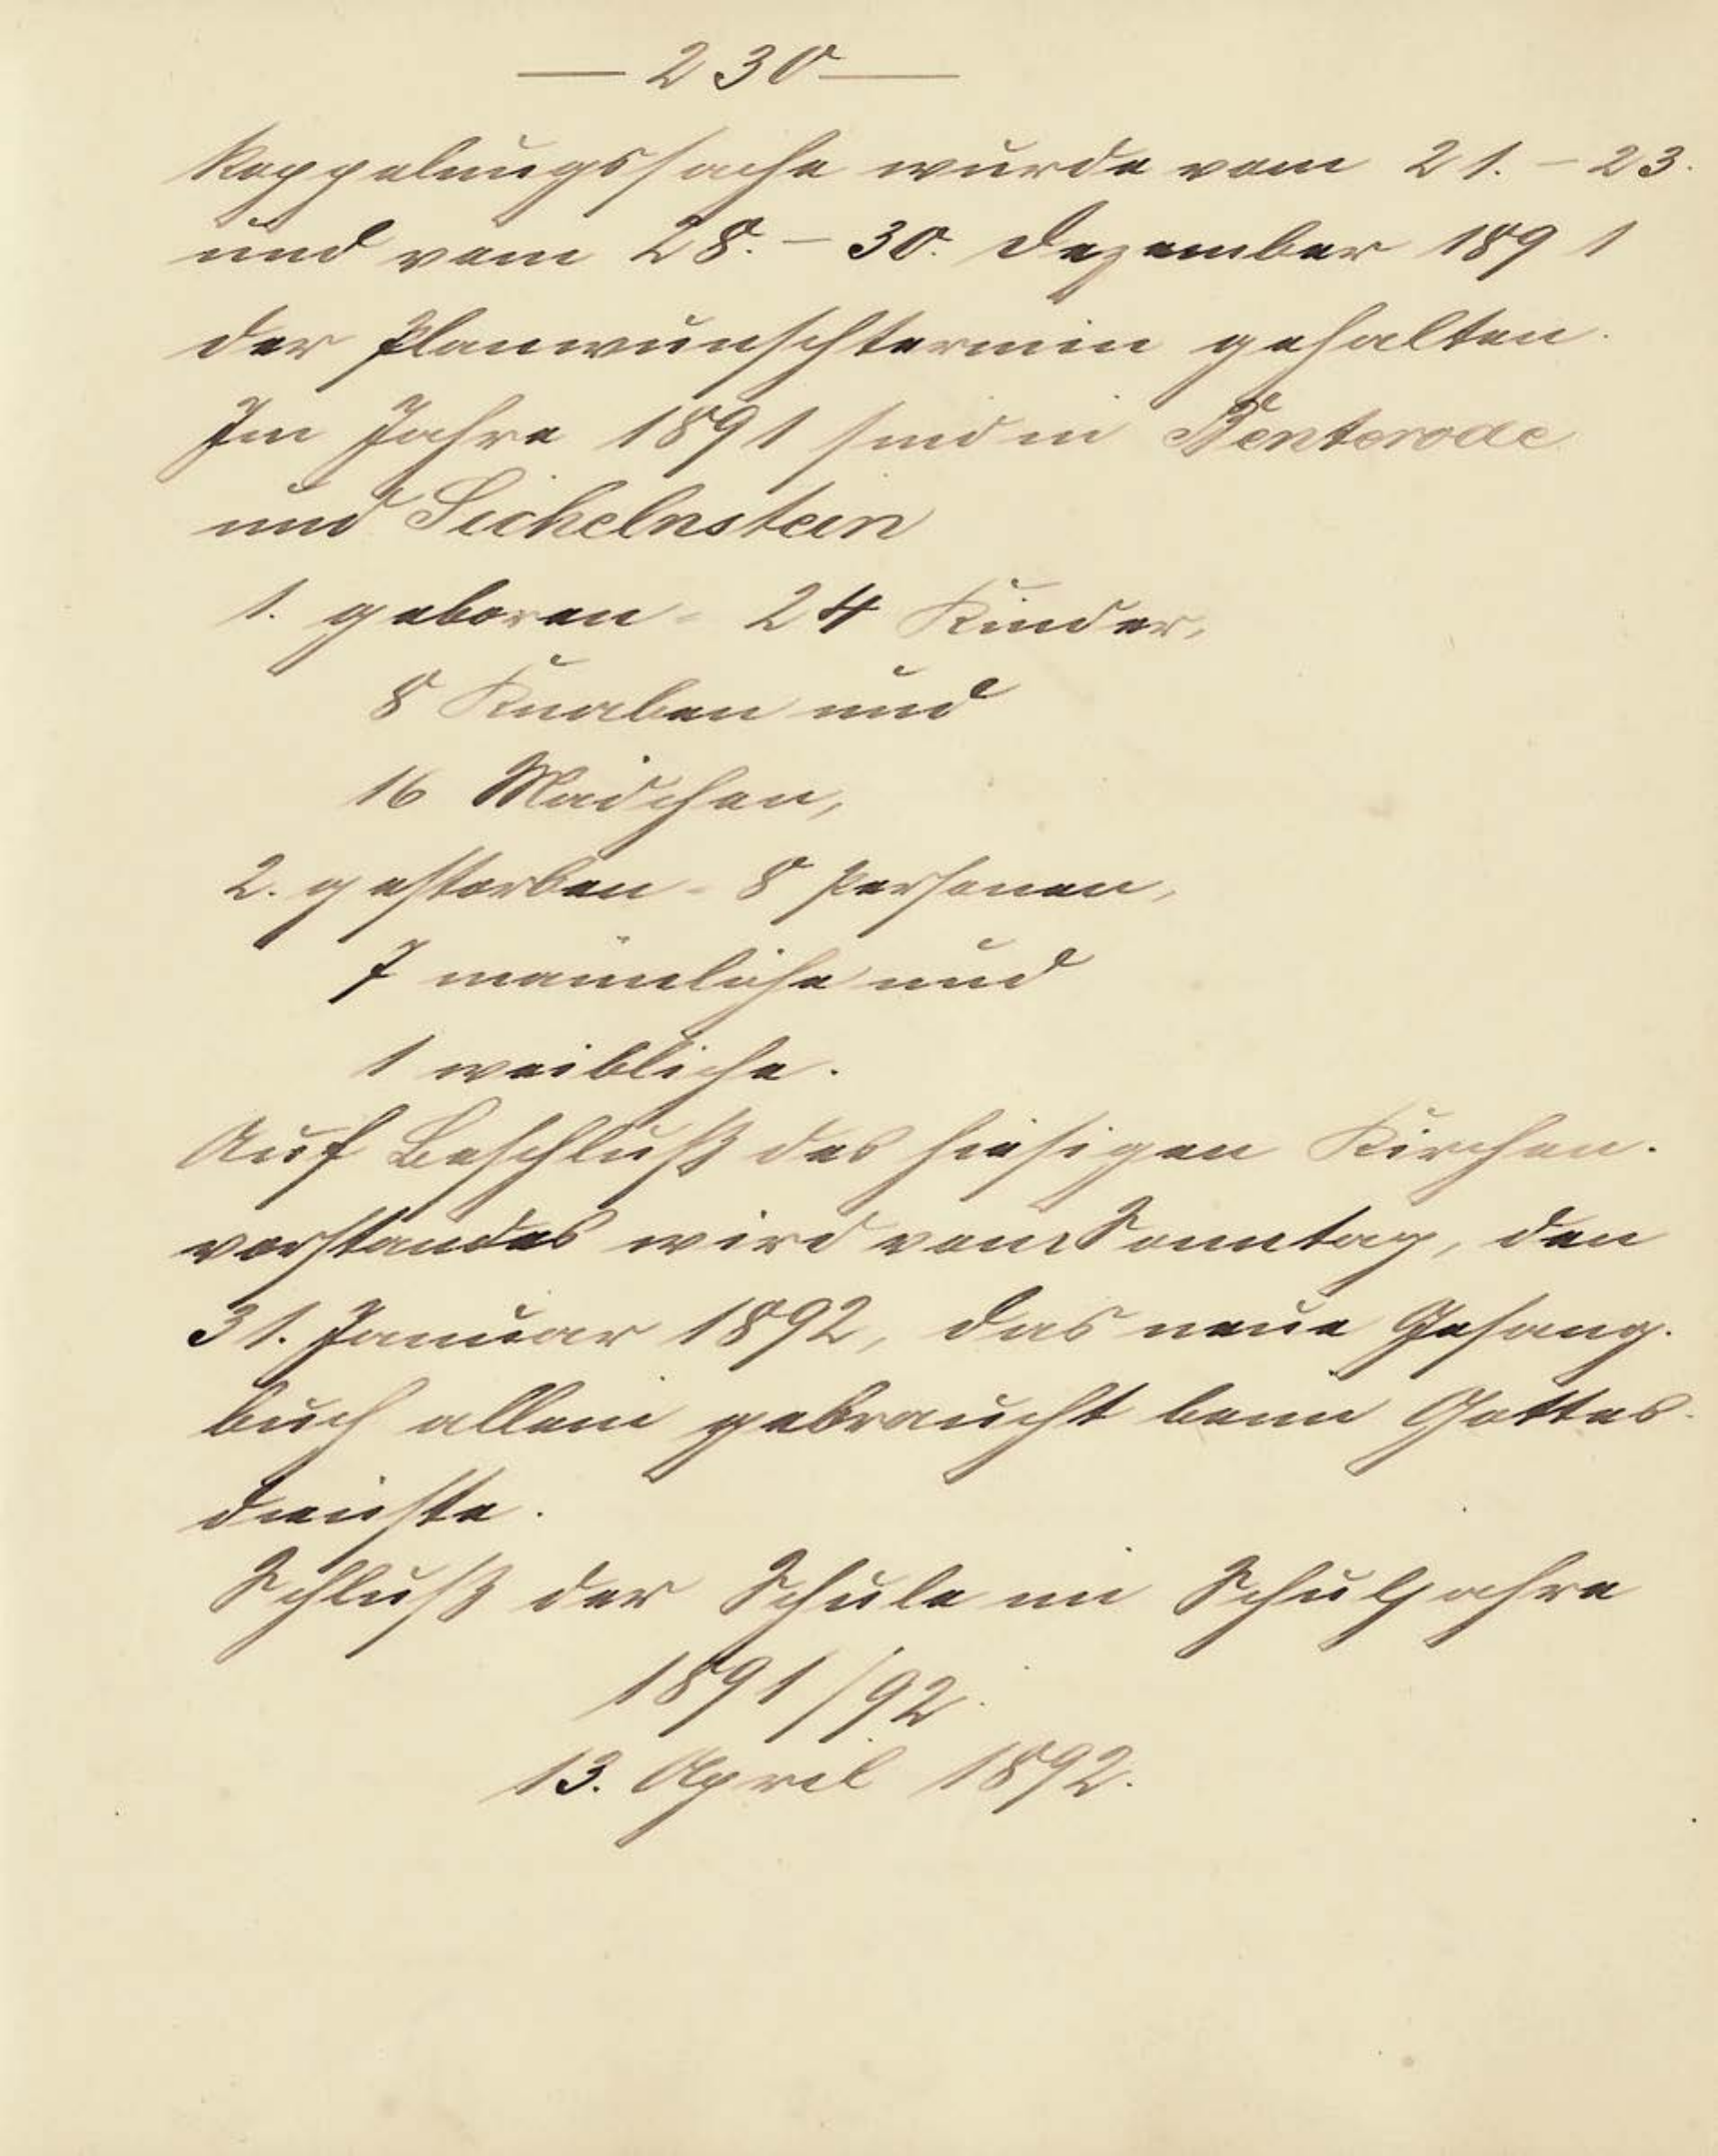 — 230 —
koppelungssache wurde vom 21. – 23.
und vom 28. – 30. Dezember 1891
der Planwunschtermin gehalten.
Im Jahre 1891 sind in Benterode
und Sichelnstein
1. geboren - 24 Kinder,
8 Knaben und
16 Mädchen,
2. gestorben - 8 Personen,
7 männliche und
1 weibliche.
Auf Beschluß des hiesigen Kirchen-
vorstandes wird vom Sonntag, den
31. Januar 1892, das neue Gesang-
buch allein gebraucht beim Gottes-
dienste.
Schluß der Schule im Schuljahre
1891/92.
13. April 1892.